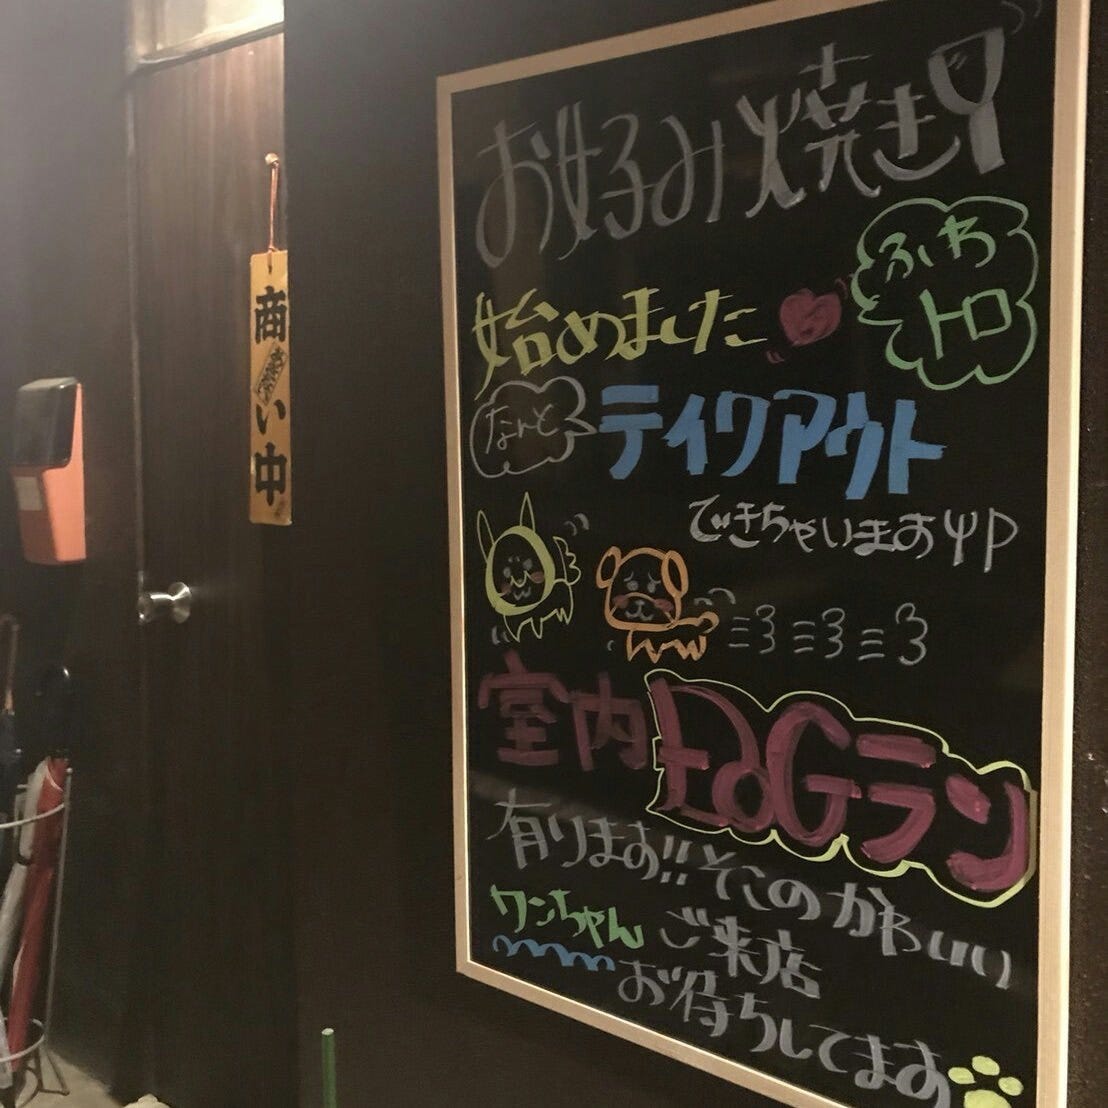 商い中
お好み焼き!
ふわ
トロ
始めました
なんと
テイクアウト
できちゃいます
室内DOGラン
有ります!!そこのかわいい
ワンちゃん ご来店
お待ちしてます